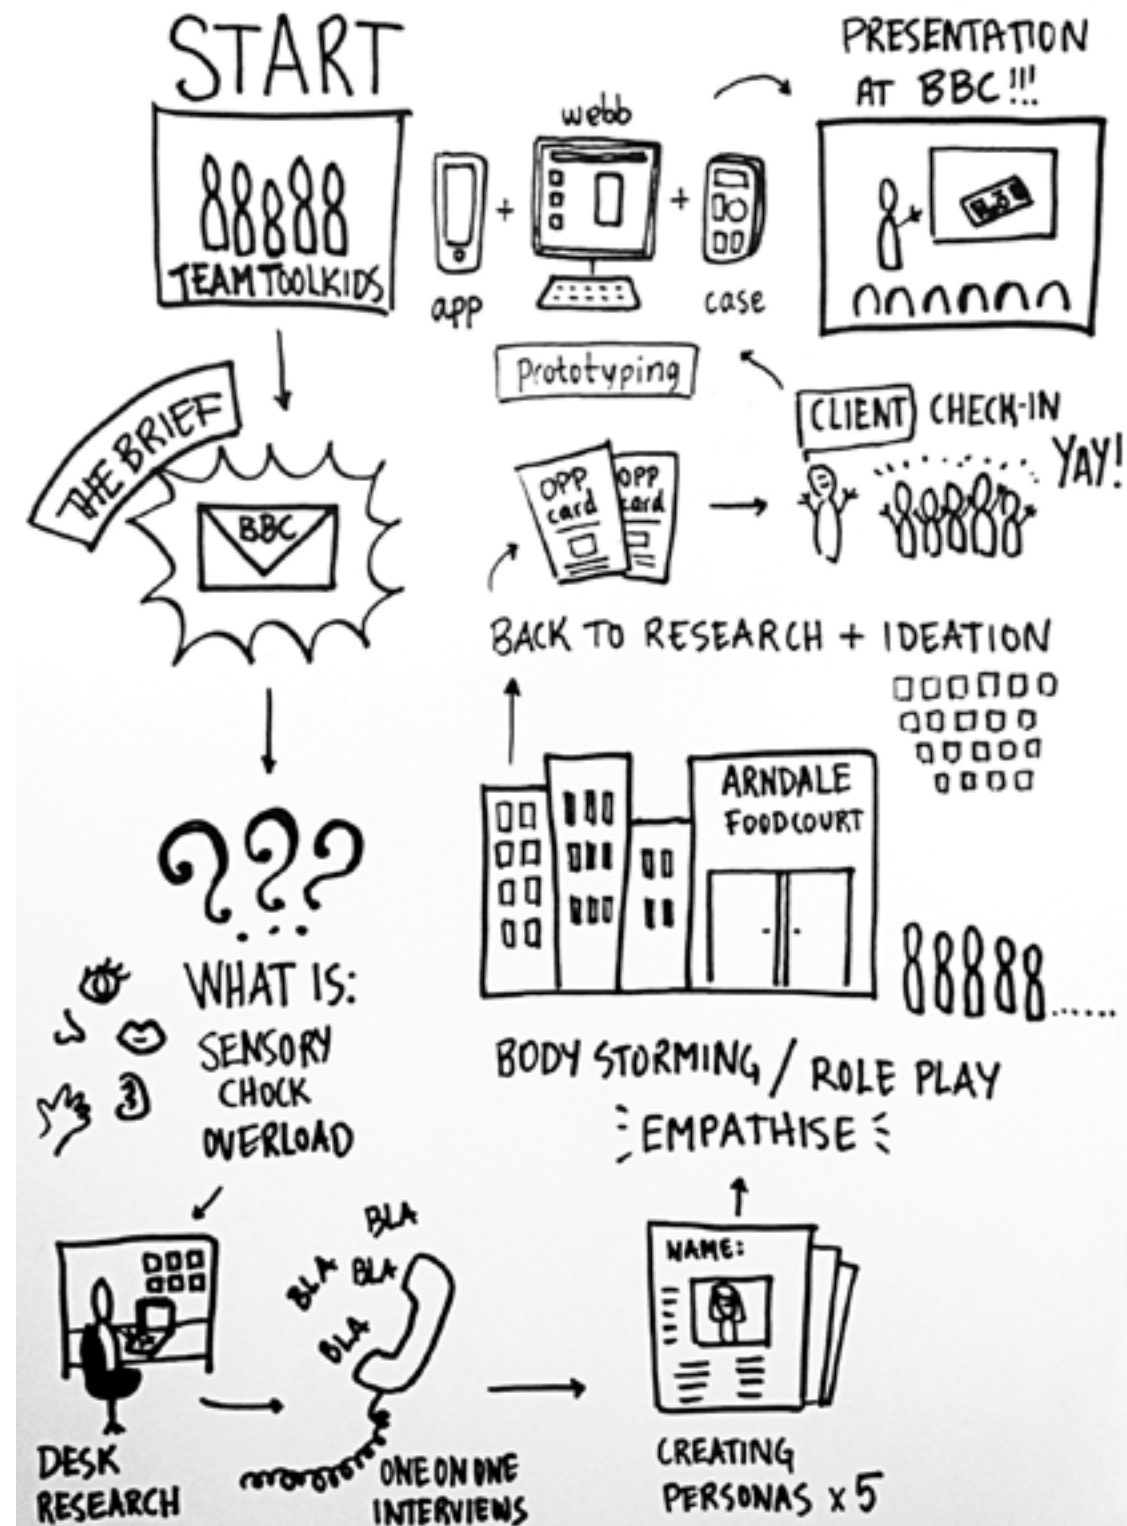 START
TEAM TOOLKIDS
THE BRIEF
BBC
???
WHAT IS:
SENSORY
CHOCK
OVERLOAD
DESK
RESEARCH
BLA
BLA
BLA
BLA
ONE ON ONE
INTERVIEWS
NAME:
CREATING
PERSONAS x 5
BODY STORMING / ROLE PLAY
EMPATHISE
ARNDALE
FOODCOURT
BACK TO RESEARCH + IDEATION
OPP
card
OPP
card
CLIENT CHECK-IN
YAY!
Prototyping
app
+
webb
+
case
PRESENTATION
AT BBC!!!